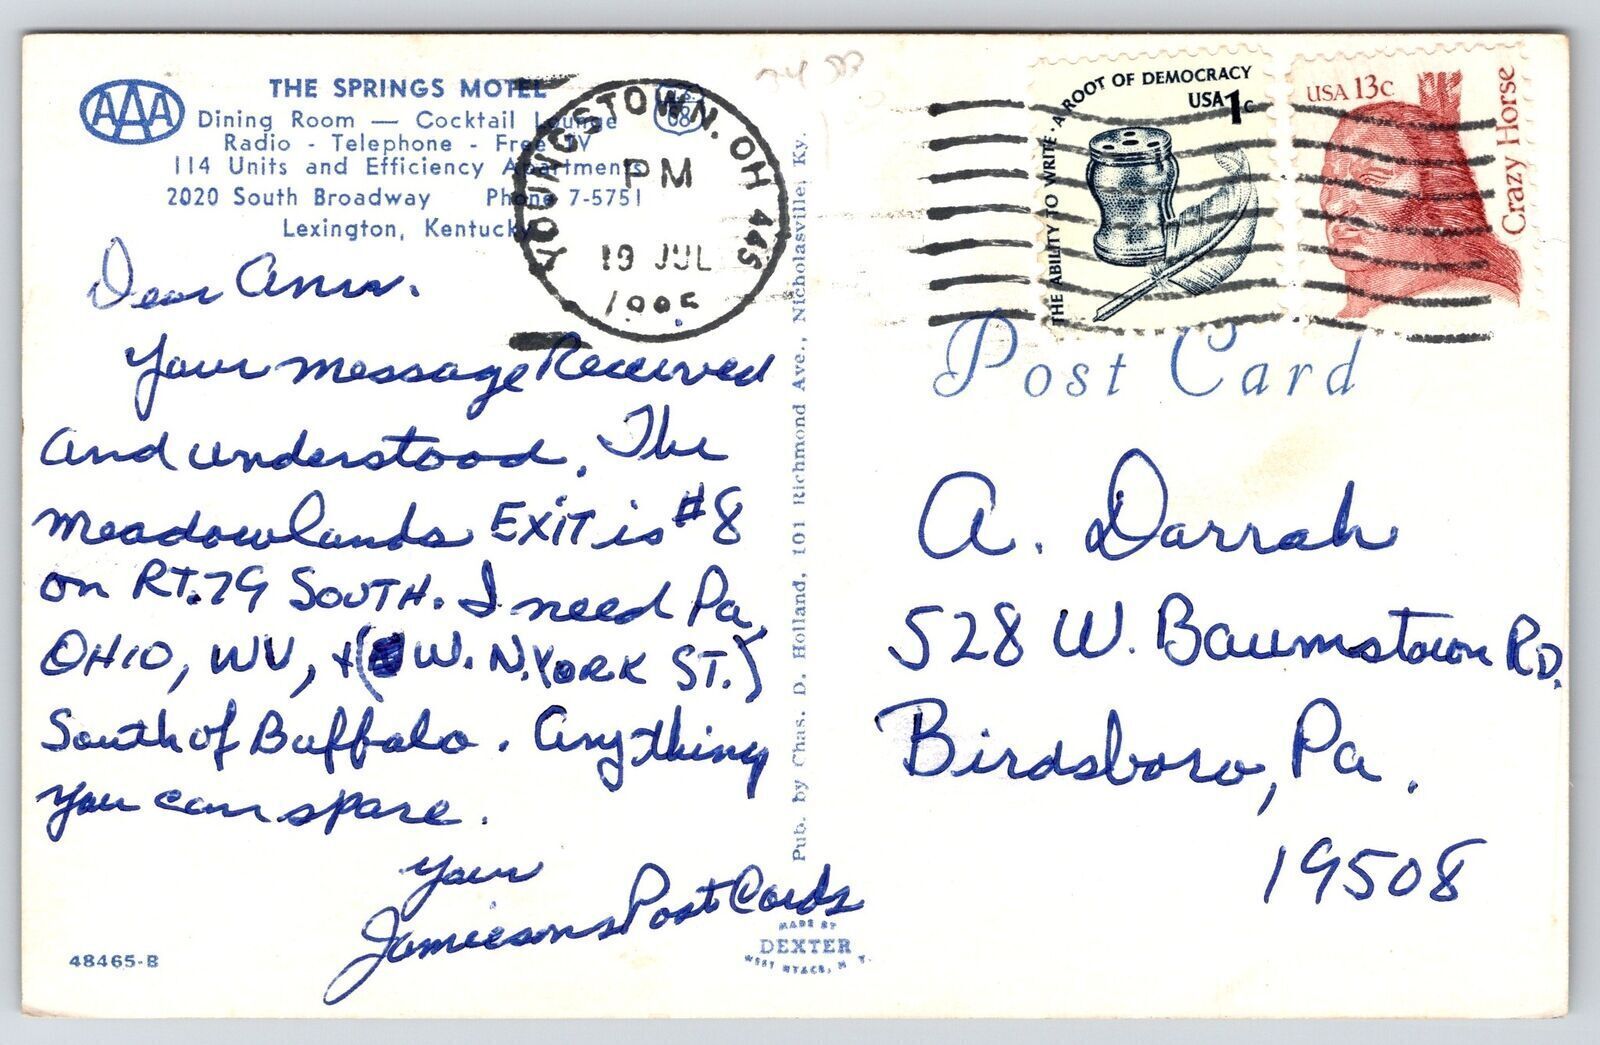 AAA
THE SPRINGS MOTEL
Dining Room — Cocktail Lounge
Radio - Telephone - Free TV
114 Units and Efficiency Apartments
2020 South Broadway Phone 7-5751
Lexington, Kentucky
U.S. 68
YOUNGSTOWN, OH 445
PM
19 JUL
THE ABILITY TO WRITE · A ROOT OF DEMOCRACY
USA 1c
USA 13c
Crazy Horse
Post Card
Dear Ann.
Your message Received
and understood. The
Meadowlands EXIT is #8
on RT. 79 SOUTH. I need Pa,
OHIO, WV, + (W. N. YORK ST.)
South of Buffalo. Anything
you can spare.
Your
Jamiesons Post Cards
48465-B
Pub. by Chas. D. Holland, 101 Richmond Ave., Nicholasville, Ky.
MADE BY
DEXTER
WEST NYACK, N. Y.
A. Darrah
528 W. Baumstown RD.
Birdsboro, Pa.
19508